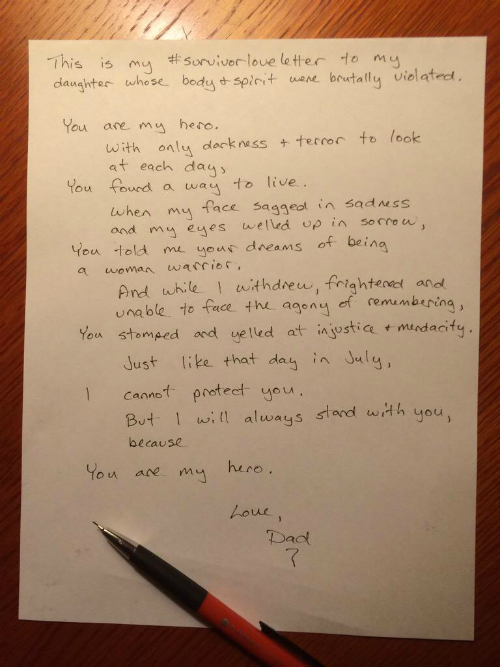 This is my #survivorloveletter to my
daughter whose body + spirit were brutally violated.
You are my hero.
With only darkness + terror to look
at each day,
You found a way to live.
When my face sagged in sadness
and my eyes welled up in sorrow,
You told me your dreams of being
a woman warrior.
And while I withdrew, frightened and
unable to face the agony of remembering,
You stomped and yelled at injustice + mendacity.
Just like that day in July,
I cannot protect you.
But I will always stand with you,
because
You are my hero.
Love,
Dad
?